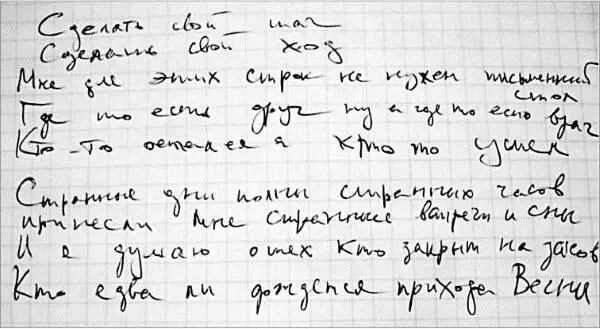 Сделать свой шаг
Сделать свой ход
Мне для этих строк не нужен письменный
стол
Где то есть друг ну а где то есть враг
Кто-то остался а кто то ушел
Странные дни полны странных часов
принесли мне странные вапреги и сны
И я думаю о тех кто закрыт на засов
Кто едва ли дождется прихода Весны